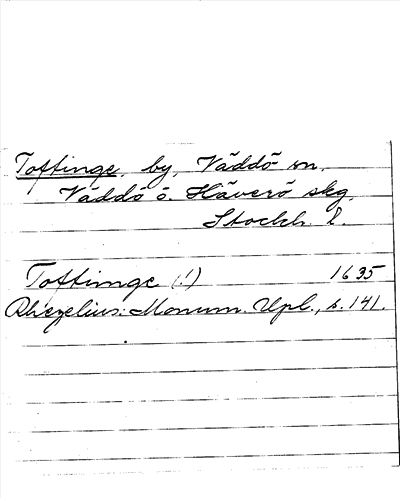 Toftinge, by, Väddö sn.
Väddö o. Häverö skg.
Stockh. l.
Toftimge (!) 1635
Rhezelius: Monum. Upl., s. 141.